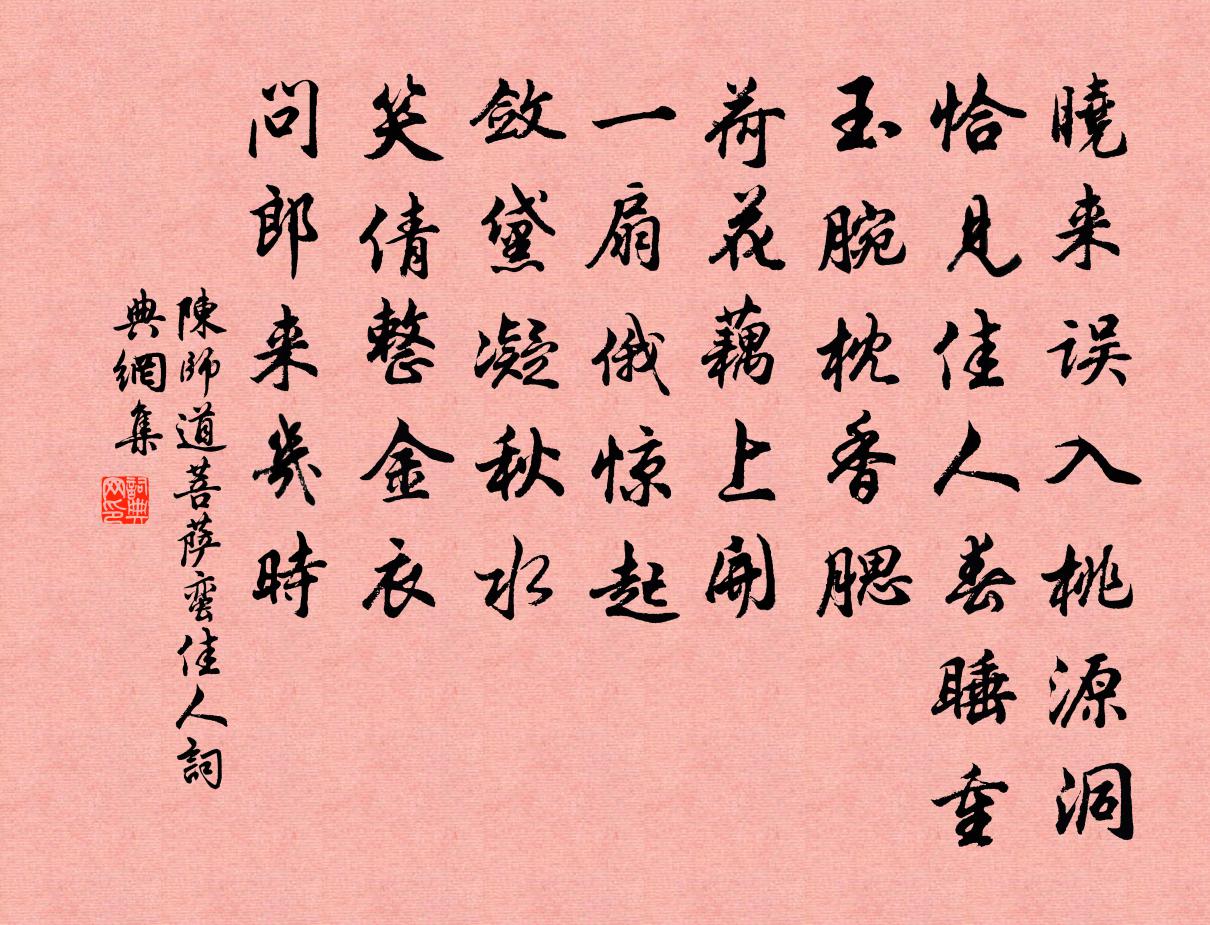 曉来误入桃源洞
恰見佳人春睡重
玉腕枕香腮
荷花藕上開
一扇俄惊起
敛黛凝秋水
笑倩整金衣
问郎来幾時
陳師道菩萨蛮佳人詞
典網集
詞典
网印